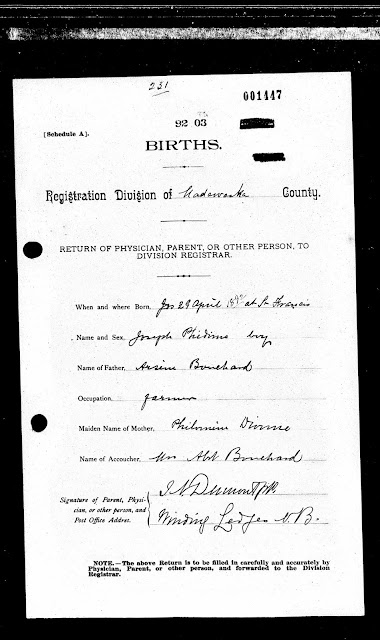 231
001447
92 03
[Schedule A].
BIRTHS.
Registration Division of Madawaska County.
RETURN OF PHYSICIAN, PARENT, OR OTHER PERSON, TO
DIVISION REGISTRAR.
When and where Born, 29 April at St Francis
Name and Sex, Joseph Phidime boy
Name of Father, Arsène Bouchard
Occupation, farmer
Maiden Name of Mother, Philomène
Name of Accoucher, Mrs Abel Bouchard
Signature of Parent, Physi-
cian, or other person, and
Post Office Addres.
J. N. Dumont
Winding Ledges N. B.
NOTE.—The above Return is to be filled in carefully and accurately by
Physician, Parent, or other person, and forwarded to the Division
Registrar.